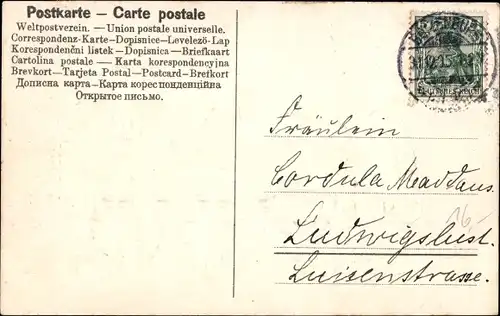 Postkarte – Carte postale
Weltpostverein. — Union postale universelle.
Correspondenz-Karte — Dopisnice — Levelező-Lap
Korespondenční listek — Dopisnica — Briefkaart
Cartolina postale — Karta korespondencyjna
Brevkort — Tarjeta Postal — Postcard — Brefkort
Дописна карта — Карта кореспонденційна
Открытое письмо.
DEUTSCHES REICH
Fräulein
Cordula
16,-
Ludwigslust.
Luisenstrasse.